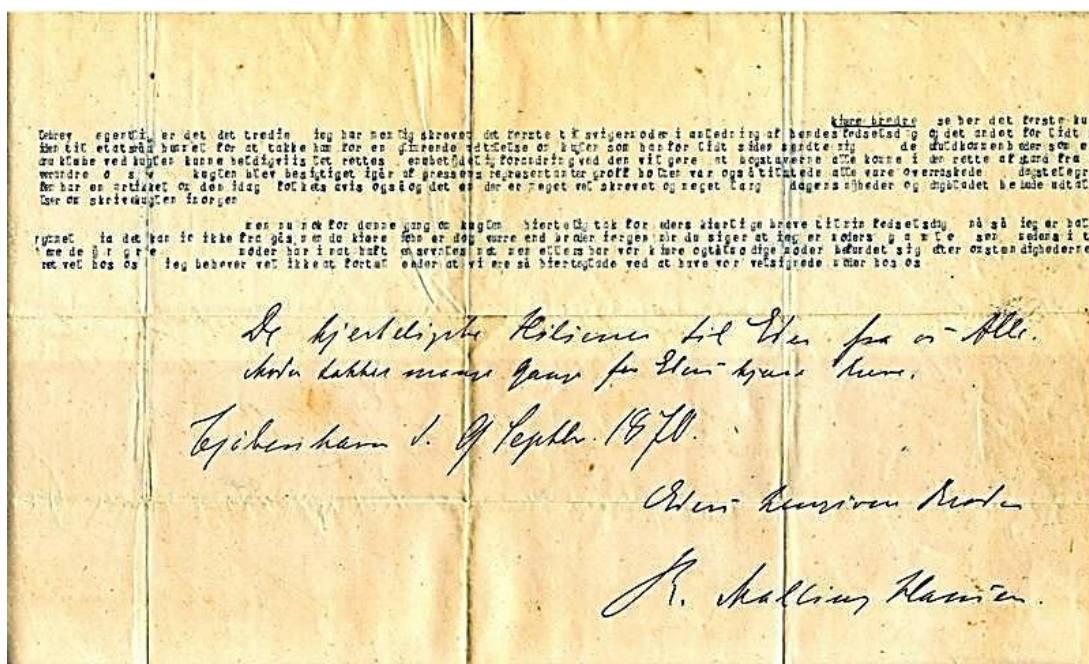 kiære brødre se her det første ku
glebrev egentlig er det det tredie jeg har nemlig skrevet det første til svigermoder i anledning af hendes fødselsdag og det andet for lidt
siden til etatsråd hummel for at takke ham for en glimrende udtalelse om kuglen som han for lidt siden sendte mig de ufuldkommenheder som e
dnu klæbe ved kuglen kunne heldigviis let rettes en forandring ved den vil gøre at bogstaverne alle komme i den rette afstand fra
verandre o s v kuglen blev besigtiget igår af pressens representanter grøff bolten var også tilstede alle vare overraskede dagstelegr
fen har en artikkel om den idag folkets avis også og det en der er meget vel skrevet og meget lang dagens nyheder og dagbladet bebude udtal
elser om skrivekuglen imorgen
men nu nok for denne gang om kuglen hiertelig tak for eders kierlige breve til min fødselsdag så så jeg er
ia det kan ikke fra gås men du kiære er dog værre end broder iørgen når du siger at jeg er moders g a m l e søn
moder har i nat haft en søvnløs nat men ellers har vor kiære og tålmodige moder befundet sig efter omstændighederne
ret vel hos os jeg behøver vel ikke at fortælle eder at vi ere så hierteglade ved at have vor velsignede moder hos os
De hjerteligste Hilsener til Eder fra os Alle.
Moder takker mange Gange for Eders kjære Breve.
Kjøbenhavn d. 9 Septbr. 1870.
Eders hengivne Broder
R. Malling Hansen.